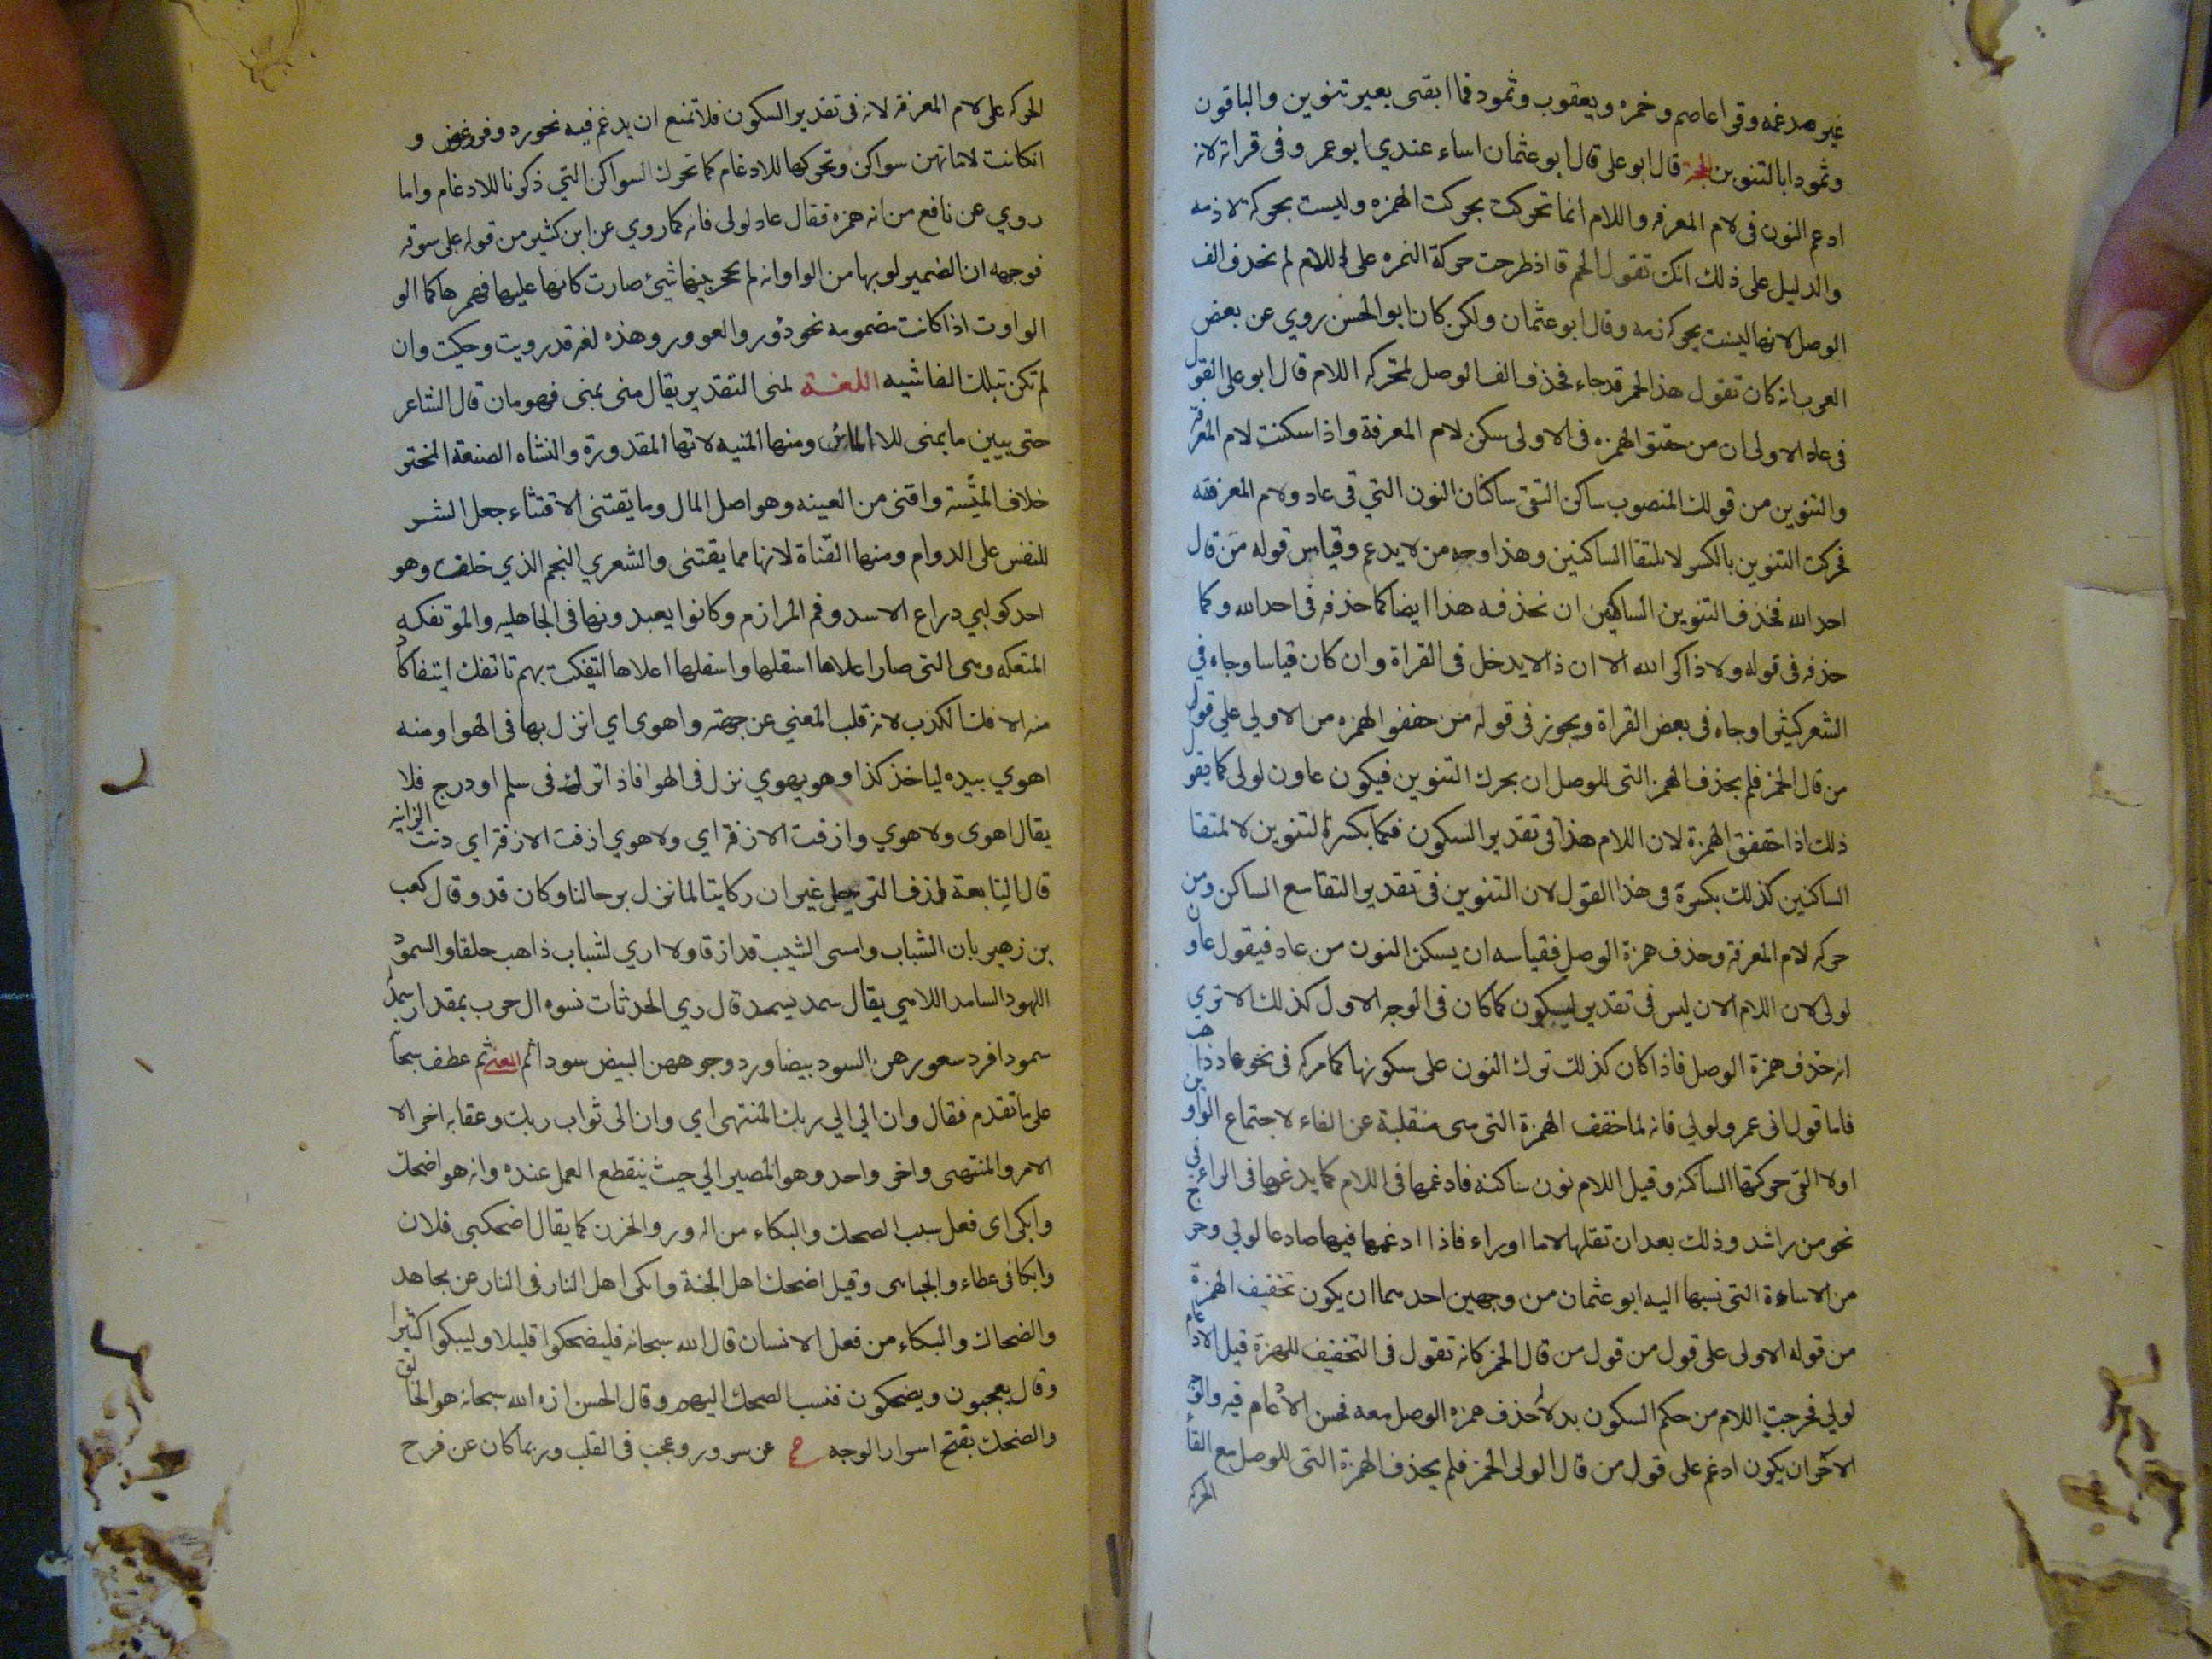 غير مدغمه وقرا عاصم وحمزه ويعقوب وثمود فما ابقى بغير تنوين والباقون
وثمودا بالتنوين الحجة قال ابو على قال ابو عثمان اساء عندي ابو عمرو فى قراته لانه
ادغم النون فى لام المعرفه واللام انما تحركت بحركت الهمزه وليست بحركة لازمه
والدليل على ذلك انك تقول الحمر فاذ طرحت حركة الهمزه على اللام لم تحذف الف
الوصل لانها ليست بحركة زمه وقال ابو عثمان ولكن كان ابو الحسن روي عن بعض
العرب انه كان تقول هذا الحمر قد جاء فحذف الف الوصل لتحركه اللام قال ابو على القول
فى عاد الاولى ان من حقق الهمزه فى الاولى سكن لام المعرفة واذا سكنت لام المعرفة
والتنوين من قولك المنصوب ساكن التقى ساكنان النون التي فى عاد ولام المعرفته
فحركت التنوين بالكسر لالتقا الساكنين وهذا وجه من لا يدغم وقياس قوله من قال
احد الله فحذف التنوين الساكين ان تحذفه هذا ايضا كما حذفه فى احد الله وكما
حذفه فى قوله ولا ذاكر الله الا ان ذا لا يدخل فى القراة وان كان قياسا وجاه في
الشعر كثيرا وجاه فى بعض القراة ويجوز فى قوله من خفف الهمزه من الاولي على قول
من قال الحمر فلم يحذف الهمز التى للوصل ان يحرك التنوين فيكون عاون لولى كما يقول
ذلك اذا حقق الهمزة لان اللام هذا فى تقدير السكون فكما بكسرة لتنوين لالتقا
الساكنين كذلك بكسرة فى هذا القول لان التنوين فى تقدير التقا مع الساكن ومن
حركه لام المعرفة وحذف همزة الوصل فقياسه ان يسكن النون من عاد فيقول عاون
لولى لان اللام الان ليس فى تقدير سكون كما كان فى الوجه الاول كذلك الا تري
انه حذف همزة الوصل فاذا كان كذلك ترك النون على سكونها كما تركه فى نحو عاد ذاهب
فاما قول ابى عمرو لولي فانه لما خفف الهمزة التى هى منقلبة عن الفاء لاجتماع الواوين
اولا القى حركتها الساكنه وقبل اللام نون ساكنه فادغمها فى اللام كما يدغمها فى الراء فى
نحو من راشد وذلك بعد ان تقلبها لاما اوراء فاذا ادغمها فيها صاد عا لولي وخرج
من الاساءة التى نسبها اليه ابو عثمان من وجهين احدهما ان يكون تخفيف الهمزة
من قوله الاولى على قول من قول من قال الحمر كانه تقول فى التخفيف للهمزة قبل الادغام
لولي فخرجت اللام من حكم السكون بدلا حذف همزه الوصل معه فحسن الادغام فيه والوجه
الاخر ان يكون ادغم على قول من قال الولى الحمر فلم يحذف الهمزة التى للوصل مع القا
الحركه
الحركه على لام المعرفة لانه فى تقدير السكون فلا تمنع ان يدغم فيه نحو رد وفر وغض و
انكانت لاماتهن سواكن وتحركها للادغام كما تحرك السواكن التي ذكرنا للادغام واما
روي عن نافع من انه همزه فقال عاد لولى فانه كما روي عن ابن كثير من قوله على سوقه
فوجهه ان الضمير لوبها من الواوانه لم يحجر بينها شيئ صارت كانها عليها فهمزها كما الو
الواوت اذا كانت مضمومه نحو دؤر والعوور وهذه لغة قد رويت وحكيت وان
لم تكن بتلك الفاشيه اللغــة لمنى التقدير يقال منى يمنى فهو مان قال الشاعر
حتى يبين ما يمنى للا المانى ومنها المنيه لانها المقدورة والنشاه الصنعة المختر
خلاف المثيبة واقنى من القينه وهو اصل المال وما يقتنى الاقتناء جعل الشــ
للنفس على الدوام ومنها القناة لانها مما يقتنى والشعري النجم الذي خلف وهو
احد كوكبي دراع الاسد وفم المرازم وكانوا يعبدونها فى الجاهليه والموتفكه
المتعكه وهى التى صارا علاها اسفلها واسفلها اعلاها ائتفكت بهم تاتفك ايتفاكا
منه الافك الكذب لانه قلب المعني عن جهته واهوى اي انزل بها فى الهوا ومنه
اهوي بيده ليا خذ كذا وهو يهوي نزل فى الهوا فاذا نزل فى سلم او درج فلا
يقال اهوى ولا هوي وازفت الازفة اي ولا هوي ازفت الازفة اي دنت الزانيه
قال النابغة ازف الترحل غير ان ركابنا لما تزل برحالنا وكان قد وقال كعب
بن زهير بان الشباب وامسى الشيب قد ازقا ولا اري لشباب ذاهب خلقا والسمود
اللهود السامد اللاهي يقال سمد يسمد قال رمي الحدثات نسوه ال حرب بمقدار سمدن
سمودا فرد سعورهن السود بيضا ورد وجوههن البيض سودا ثم المعنى ثم عطف سبحا
على ما تقدم فقال وان الي الي ربك المنتهى اي وان الى ثواب ربك وعقابه اخر الا
الامر والمنتهى واخر واحد وهو المصير الي حيث ينقطع العمل عنده وانه هو اضحك
وابكى اى فعل سبب الضحك والبكاء من السرور والحزن كما يقال اضحكنى فلان
وابكانى عطاء والجباىى وقيل اضحك اهل الجنة وابكى اهل النار فى النار عن مجاهد
والضحاك والبكاء من فعل الانسان قال الله سبحانه فليضحكوا قليلا وليبكوا كثيرا
وقال يعجبون ويضحكون فنسب الضحك اليهم وقال الحسن ان الله سبحانه هو الخالق
والضحك بفتح اسرار الوجه عن سرور وعجب فى القلب وربما كان عن فرح